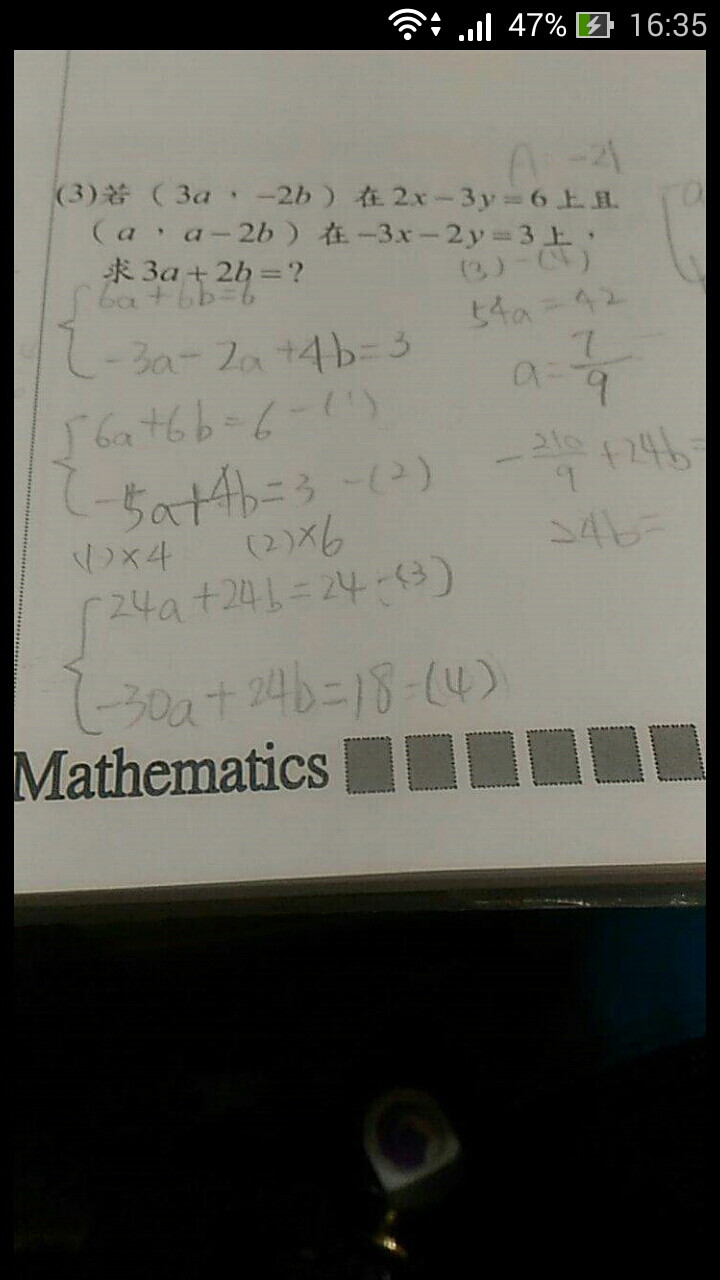 47% 16:35
A = -21
(3)若（3a，-2b）在2x-3y=6上且
（a，a-2b）在-3x-2y=3上，
求3a+2b=?
6a+6b=6
-3a-2a+4b=3
6a+6b=6-(1)
-5a+4b=3-(2)
(1)×4 (2)×6
24a+24b=24-(3)
-30a+24b=18-(4)
(3)-(4)
54a=42
a=7/9
+24b=
24b=
Mathematics